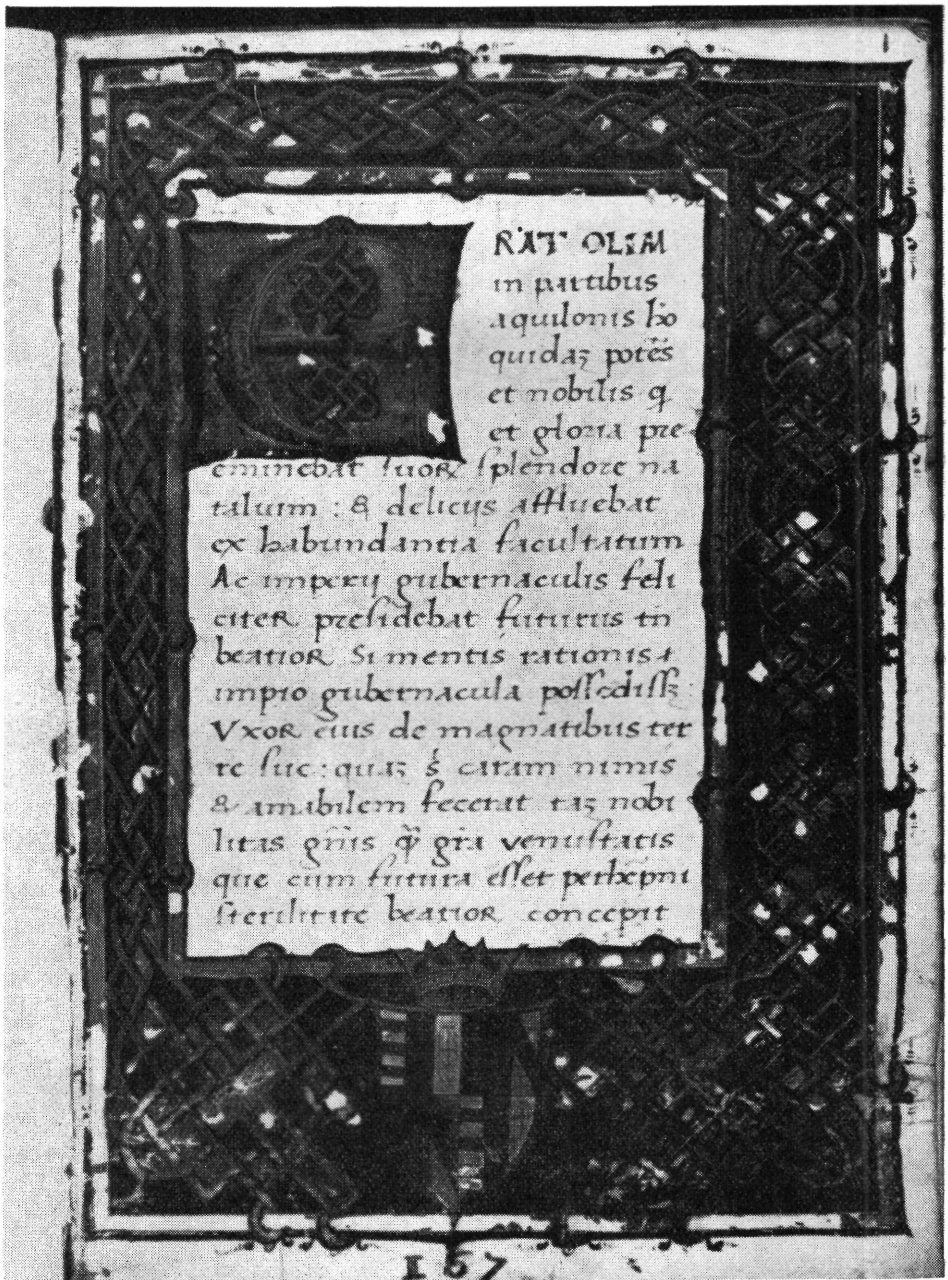 ERAT OLIM
in partibus
aquilonis ho
quidaꝫ potẽs
et nobilis q
et gloria pre
eminebat suoꝝ splendore na
talium : & delicijs affluebat
ex habundantia facultatum
Ac imperij gubernaculis feli
citer presidebat futurus tñ
beatior Si mentis rationis 
impio gubernacula possediss
Vxor eius de magnatibus ter
re sue : quaꝫ s̃ caram nimis
& amabilem fecerat taꝫ nobi
litas gñis q̃ gr̃a venustatis
que cum futura esset
sterilitate beatior concepit
157